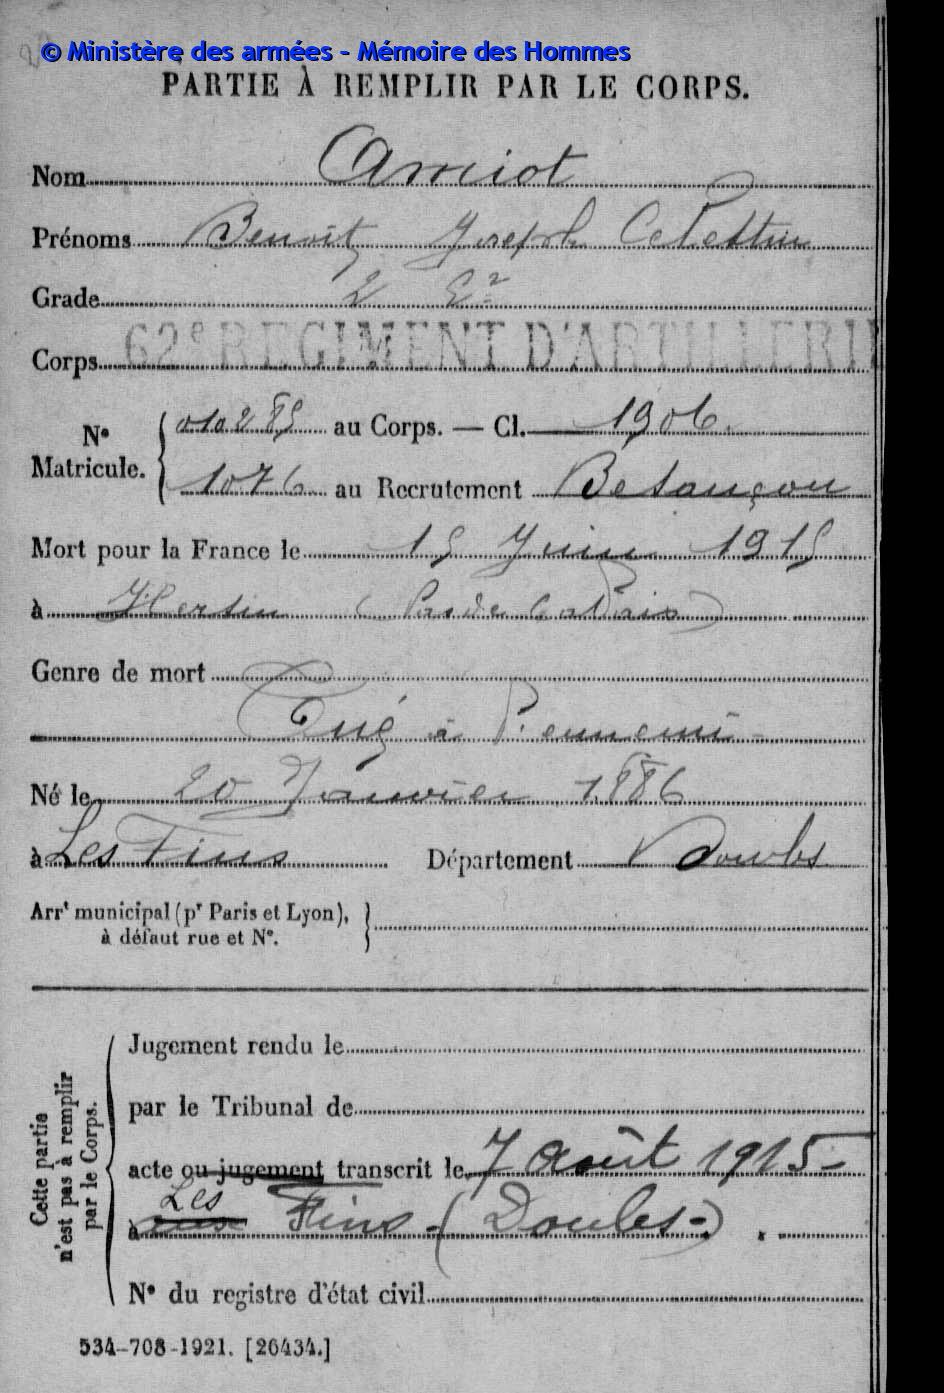 © Ministère des armées - Mémoire des Hommes
PARTIE À REMPLIR PAR LE CORPS.
Nom Amiot
Prénoms Benoit Joseph Celestin
Grade 2 C2
Corps 62e REGIMENT D'ARTILLERIE
No Matricule. { 010285 au Corps. — Cl. 1906
1076 au Recrutement Besançon
Mort pour la France le 15 Juin 1915
à Hersin (Pas de Calais)
Genre de mort
Tué à l'ennemi
Né le 20 Janvier 1886
à Les Fins Département Doubs
Arrt municipal (pr Paris et Lyon), }
à défaut rue et No.
Cette partie n'est pas à remplir par le Corps.
Jugement rendu le
par le Tribunal de
acte ou jugement transcrit le 7 août 1915
Les
à aux Fins (Doubs)
No du registre d'état civil
534-708-1921. [26434.]